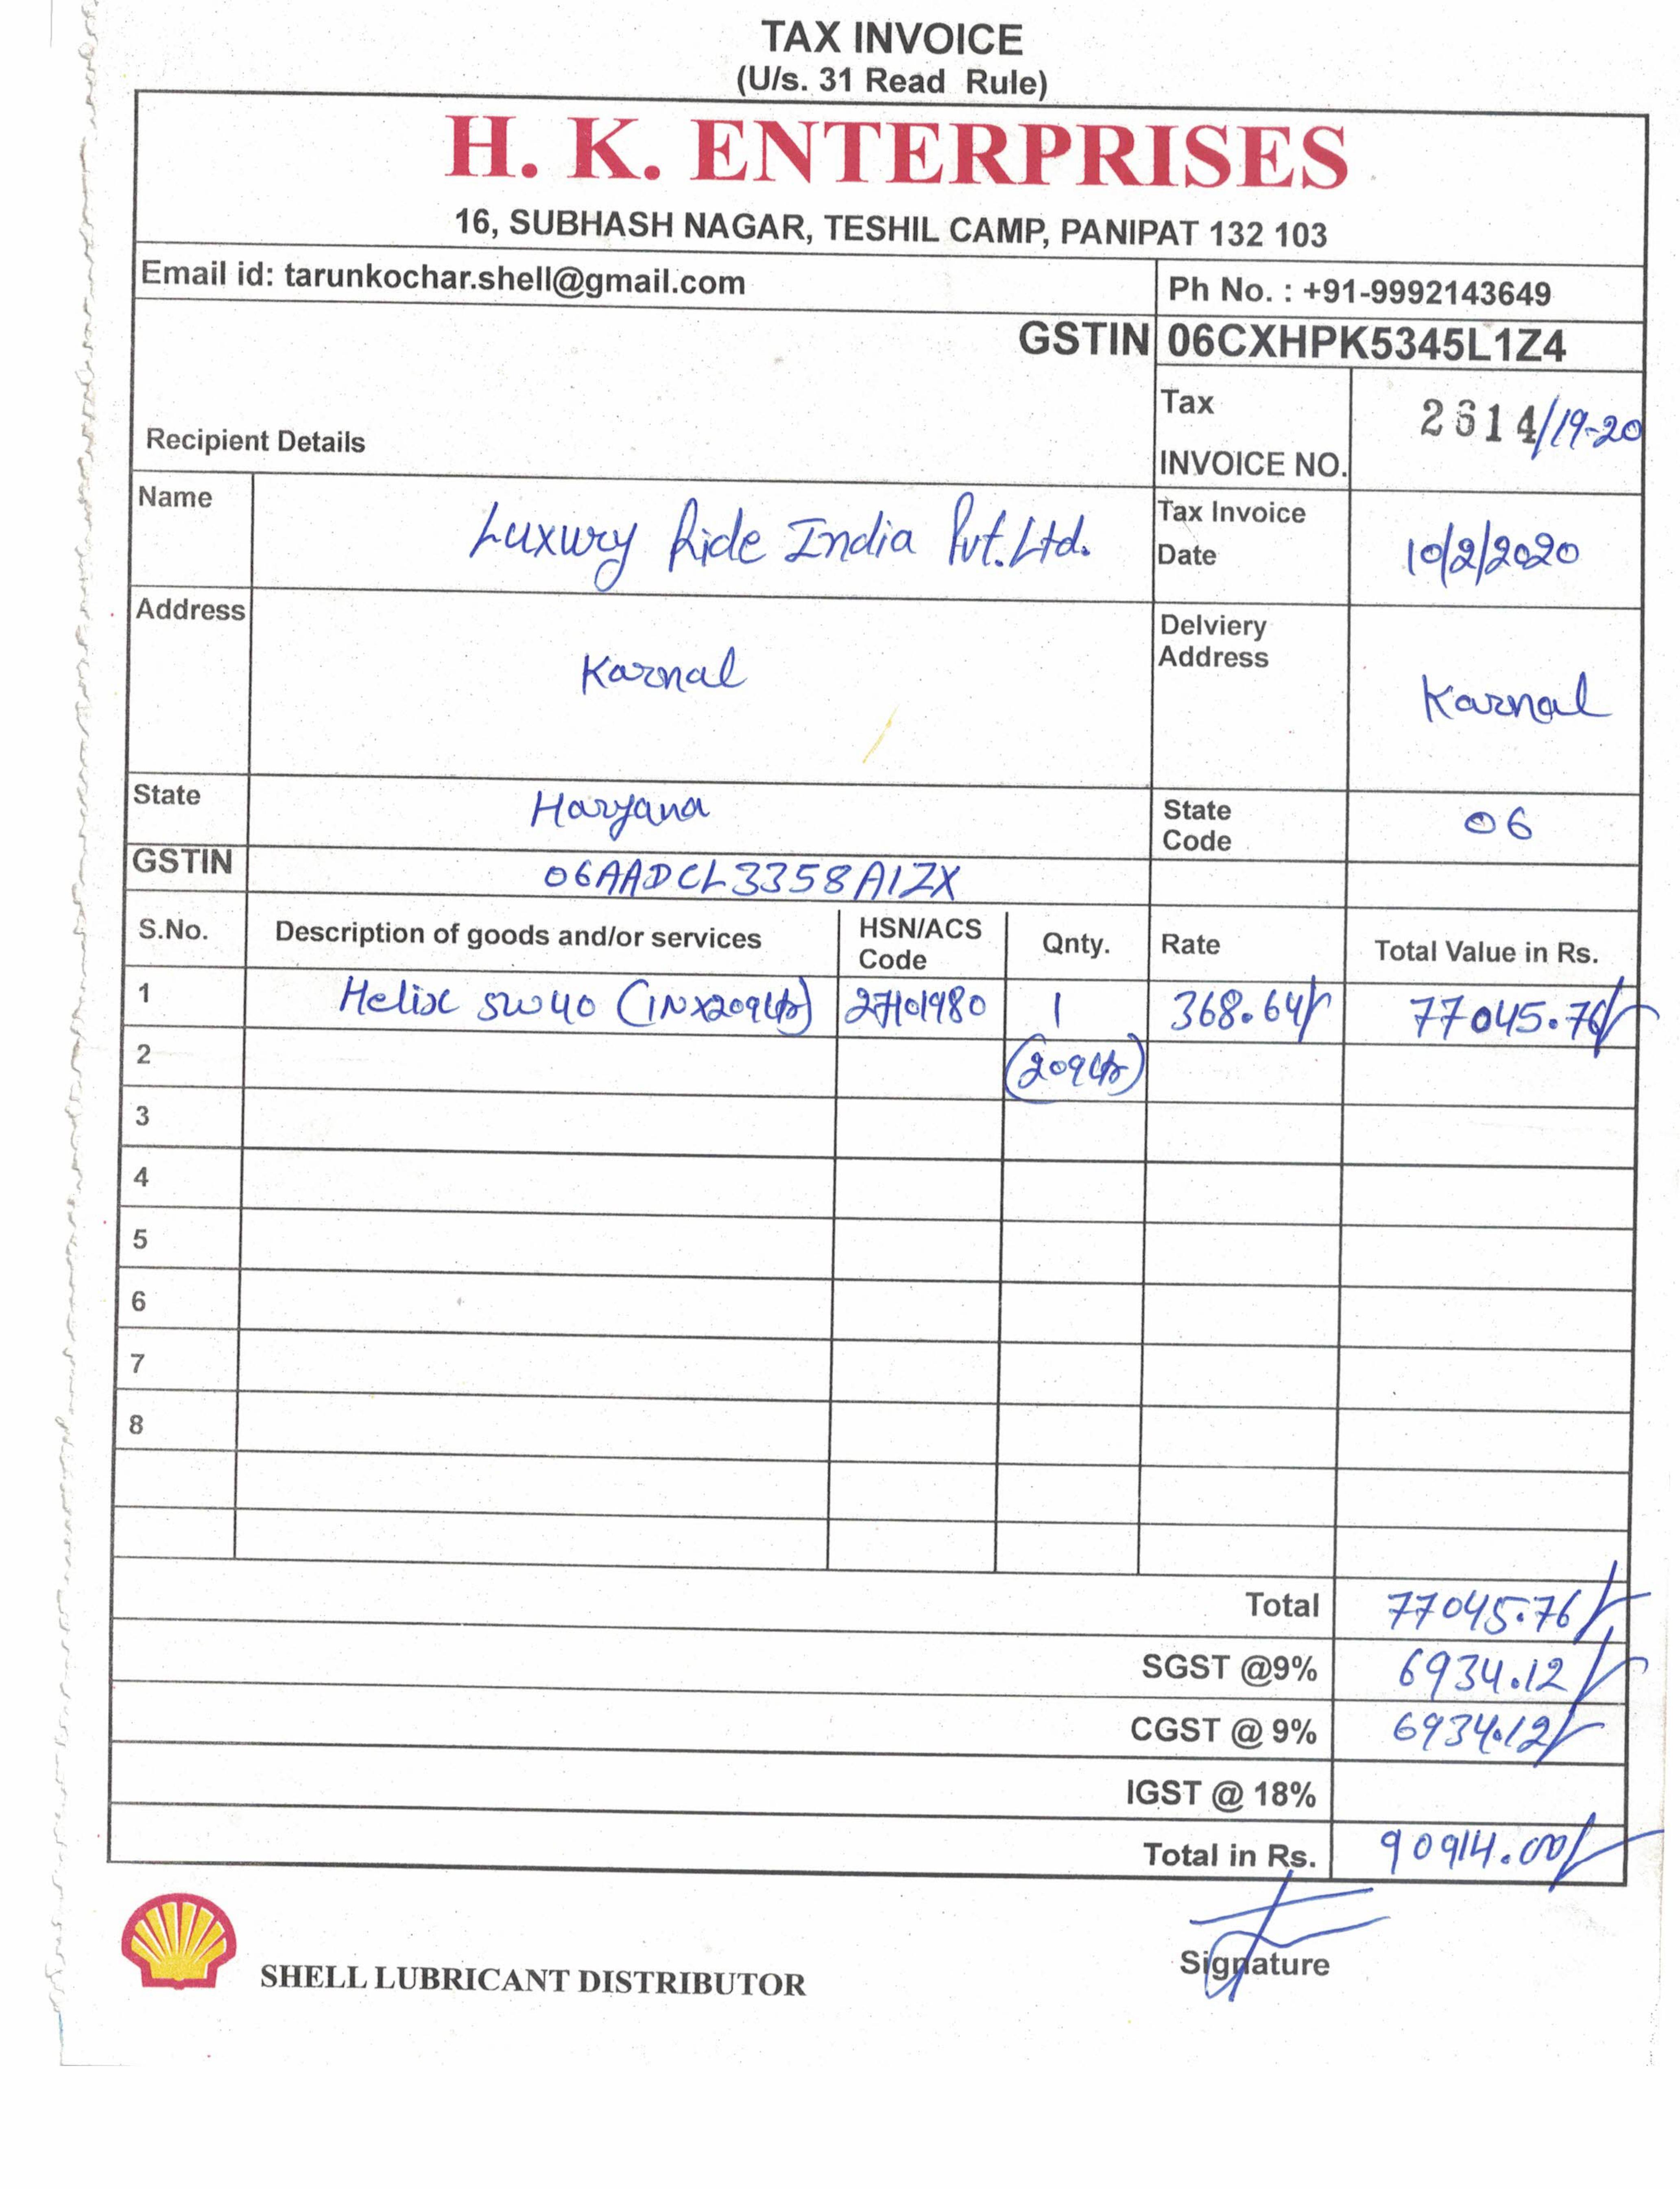 TAX INVOICE
(U/s. 31 Read Rule)
H. K. ENTERPRISES
16, SUBHASH NAGAR, TESHIL CAMP, PANIPAT 132 103
Email id: tarunkochar.shell@gmail.com
Ph No. : +91-9992143649
GSTIN 06CXHPK5345L1Z4
Recipient Details
Tax INVOICE NO. 2614/19-20
Name Luxury Ride India Pvt.Ltd.
Tax Invoice Date 10/2/2020
Address Karnal
Delviery Address Karnal
State Haryana
State Code 06
GSTIN 06AADCL3358A1ZX
S.No. Description of goods and/or services HSN/ACS Code Qnty. Rate Total Value in Rs.
1 Helix 5W40 (1NX209Ltr) 27101980 1 368.64/- 77045.76/-
2 (209Ltr)
3
4
5
6
7
8
Total 77045.76/-
SGST @9% 6934.12/-
CGST @ 9% 6934.12/-
IGST @ 18%
Total in Rs. 90914.00/-
SHELL LUBRICANT DISTRIBUTOR
Signature